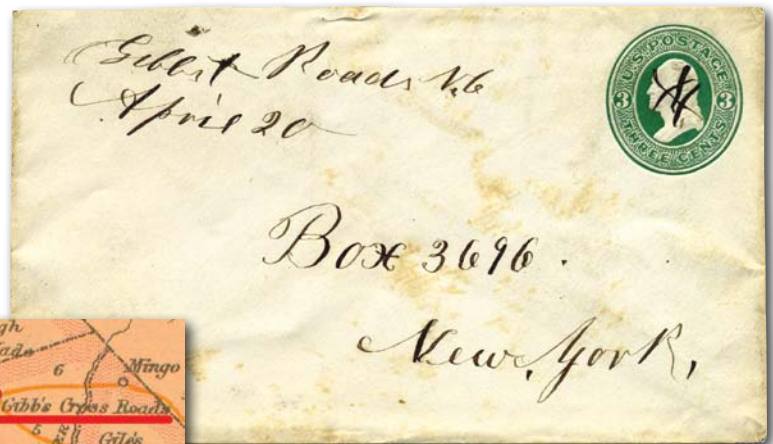 Gibbs X Roads N.C
April 20
U.S. POSTAGE
3 3
THREE CENTS
Box 3696.
New, York,
6 Mingo
Gibb's Cross Roads
5
Giles